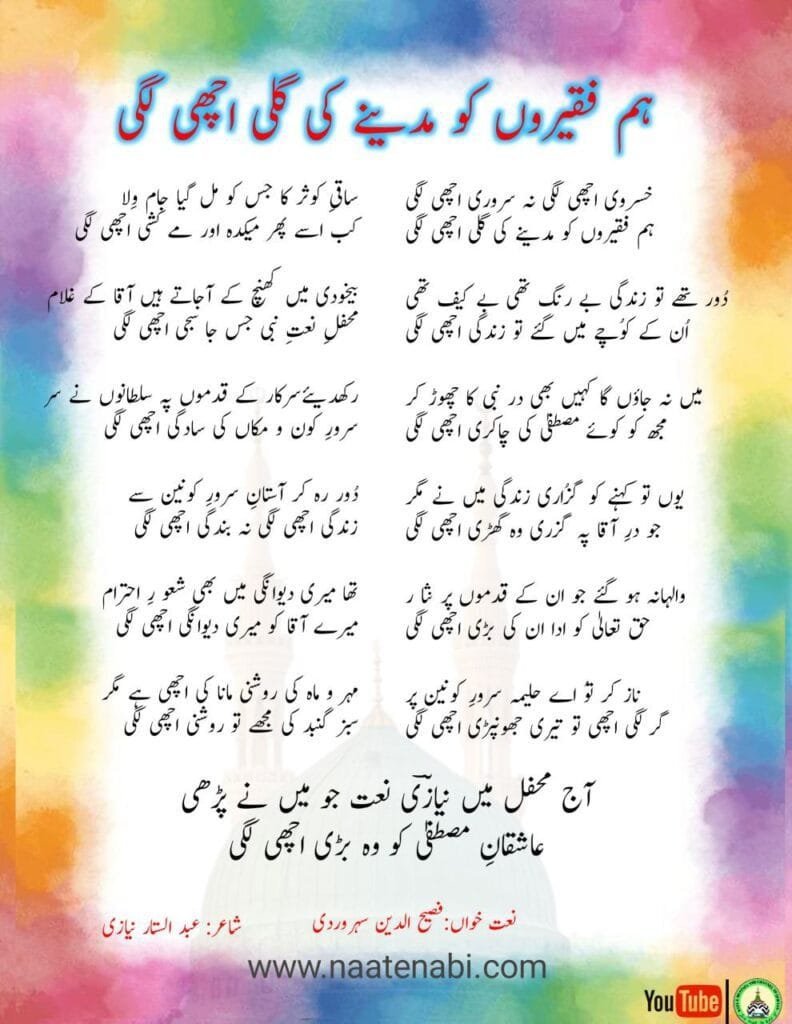 ہم فقیروں کو مدینے کی گلی اچھی لگی
خسروی اچھی لگی نہ سروری اچھی لگی
ہم فقیروں کو مدینے کی گلی اچھی لگی
ساقیِ کوثر کا جس کو مل گیا جامِ وِلا
کب اسے پھر میکدہ اور مے کشی اچھی لگی
دُور تھے تو زندگی بے رنگ تھی بے کیف تھی
اُن کے کوُچے میں گئے تو زندگی اچھی لگی
بیخودی میں کھنچ کے آجاتے ہیں آقا کے غلام
محفلِ نعتِ نبی جس جا سجی اچھی لگی
میں نہ جاؤں گا کہیں بھی در نبی کا چھوڑ کر
مجھ کو کوئے مصطفیٰؐ کی چاکری اچھی لگی
رکھدیئے سرکار کے قدموں پہ سلطانوں نے سر
سرورِ کون و مکاں کی سادگی اچھی لگی
یوں تو کہنے کو گزُاری زندگی میں نے مگر
جو درِ آقا پہ گزری وہ گھڑی اچھی لگی
دُور رہ کر آستانِ سرورِ کونین سے
زندگی اچھی لگی نہ بندگی اچھی لگی
والہانہ ہو گئے جو ان کے قدموں پر نثار
حق تعالیٰ کو ادا ان کی بڑی اچھی لگی
تھا میری دیوانگی میں بھی شعو رِ احترام
میرے آقا کو میری دیوانگی اچھی لگی
ناز کر توُ اے حلیمہ سرورِ کونین پر
گر لگی اچھی تو تیری جھونپڑی اچھی لگی
مہر و ماہ کی روشنی مانا کی اچھی ہے مگر
سبز گنبد کی مجھے تو روشنی اچھی لگی
آج محفل میں نیازیؔ نعت جو میں نے پڑھی
عاشقانِ مصطفیٰؐ کو وہ بڑی اچھی لگی
نعت خواں:فصیح الدین سہروردی
شاعر: عبد الستار نیازی
www.naatenabi.com
YouTube